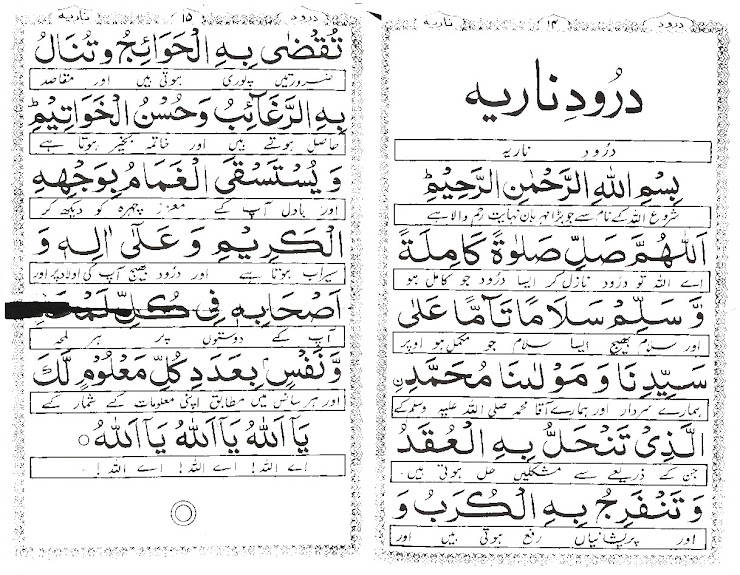 درود ۱۴ ناریہ
درُودِ ناریہ
درُود ناریہ
بِسْمِ اللهِ الرَّحْمٰنِ الرَّحِيْمِ
شروع اللہ کے نام سے جو بڑا مہربان نہایت رحم والا ہے
اَللّٰهُمَّ صَلِّ صَلٰوةً كَامِلَةً
اے اللہ تو درُود نازل کر ایسا درُود جو کامل ہو
وَّ سَلِّمْ سَلَامًا تَآمًّا عَلٰى
اور سلام بھیج ایسا سلام جو مکمل ہو اوپر
سَيِّدِنَا وَ مَوْلٰىنَا مُحَمَّدِنِ
ہمارے سردار اور ہمارے آقا محمد صلی اللہ علیہ وسلم کے
الَّذِىْ تَنْحَلُّ بِهِ الْعُقَدُ
جن کے ذریعے سے مشکلیں حل ہوتی ہیں
وَ تَنْفَرِجُ بِهِ الْكُرَبُ وَ
اور پریشانیاں رفع ہوتی ہیں اور
درود ۱۵ ناریہ
تُقْضٰى بِهِ الْحَوَآئِجُ وَ تُنَالُ
ضرورتیں پوری ہوتی ہیں اور مقاصد
بِهِ الرَّغَآئِبُ وَ حُسْنُ الْخَوَاتِيْمِ
حاصل ہوتے ہیں اور خاتمہ بخیر ہوتا ہے
وَ يُسْتَسْقَى الْغَمَامُ بِوَجْهِهِ
اور بادل آپ کے معزز چہرہ کو دیکھ کر
الْكَرِيْمِ وَ عَلٰٓى اٰلِهٖ وَ
سیراب ہوتا ہے اور درُود بھیج آپ کی اولاد پر اور
اَصْحَابِهٖ فِىْ كُلِّ لَمْحَةٍ
آپ کے دوستوں پر ہر لمحہ
وَّ نَفَسٍ بِعَدَدِ كُلِّ مَعْلُوْمٍ لَّكَ
اور ہر سانس میں مطابق اپنی معلومات کے شمار کے
يَآ اَللهُ يَآ اَللهُ يَآ اَللهُ
اے اللہ! اے اللہ! اے اللہ!